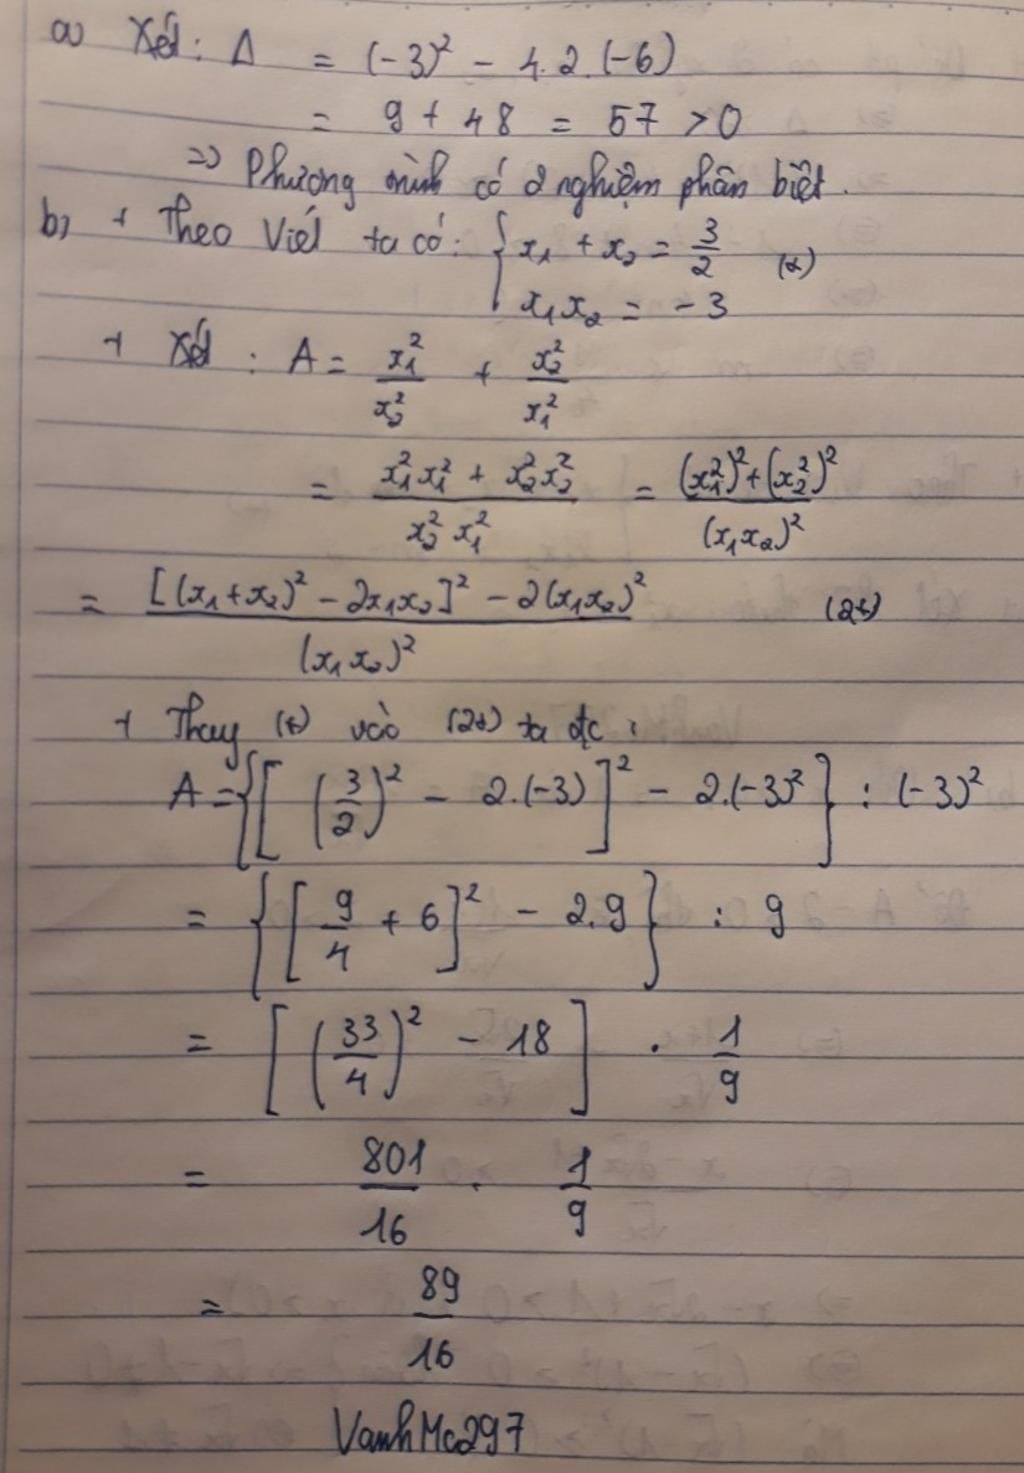 a) Xét: Δ = (-3)² - 4.2.(-6)
= 9 + 48 = 57 > 0
=> Phương trình có 2 nghiệm phân biệt.
b) + Theo Viét ta có: { x₁ + x₂ = 3/2 (*)
x₁x₂ = -3
+ Xét : A = x₁²/x₂² + x₂²/x₁²
= (x₁²x₁² + x₂²x₂²)/(x₂²x₁²) = ((x₁²)² + (x₂²)²)/(x₁x₂)²
= ([(x₁+x₂)² - 2x₁x₂]² - 2(x₁x₂)²)/(x₁x₂)² (2*)
+ Thay (*) vào (2*) ta đc :
A = {[(3/2)² - 2.(-3)]² - 2.(-3)²} : (-3)²
= {[9/4 + 6]² - 2.9} : 9
= [(33/4)² - 18] . 1/9
= 801/16 . 1/9
= 89/16
VanhMc297